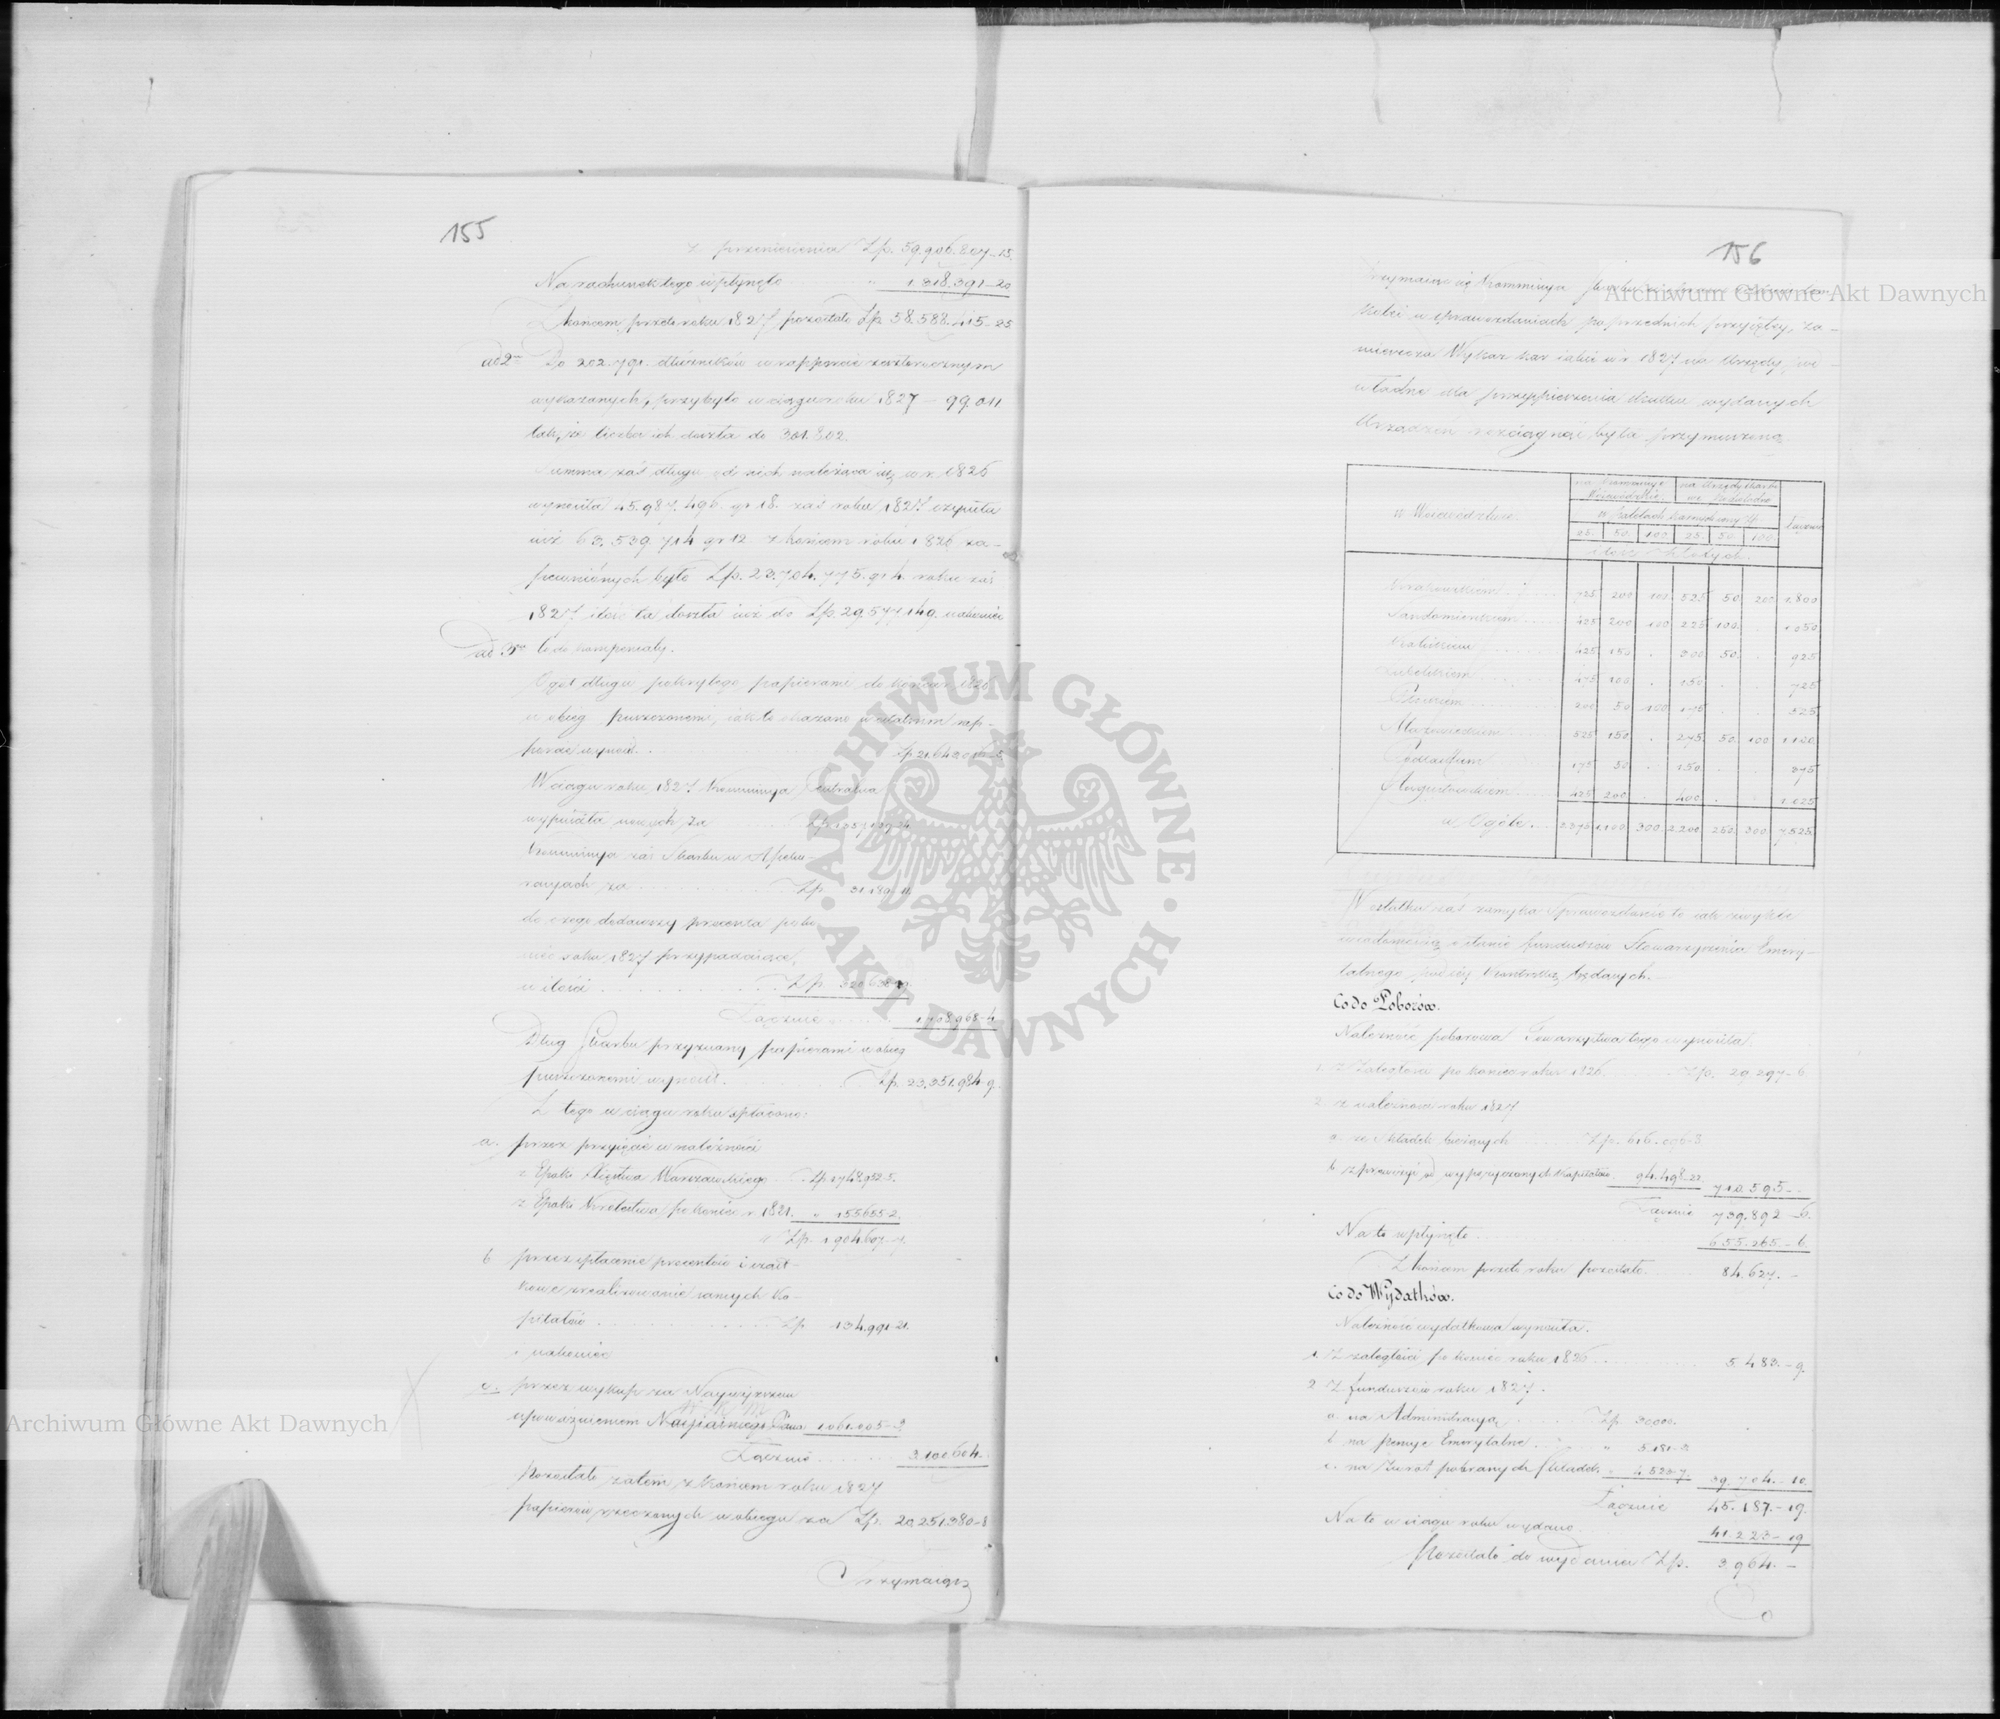 155
z przeniesienia Złp. 59.906.807-15.
Na rachunek tego wpłynęło " 1.318.391-20
Z końcem przeto roku 1827 pozostało Złp. 58.588.415-25
ad 2um Do 202.791. dłużników w rapporcie zeszłorocznym
wykazanych, przybyło w ciągu roku 1827 - 99.011.
tak, że liczba ich doszła do 301.802.
Summa zaś długu od nich należąca się w r. 1826
wynosiła 45.987.496. gr 18. zaś roku 1827. czyniła
już 63.539.714 gr 12. z końcem roku 1826 za-
pewnionych było Złp. 23.704.775. gr 4. roku zaś
1827. ilość ta doszła już do Złp. 29.577.149. nakoniec
ad 3um Co do kompensaty.
Ogół długu pokrytego papierami do końca r. 1826
w obieg puszczonemi, jak to okazano w ostatnim rap-
porcie wynosił . . Złp. 21.643.016-5
W ciągu roku 1827 Kommissya Centralna
wypuściła nowych za Złp. 1.357.139-24
Kommissya zaś Skarbu w Assygna-
cyach za . . . Złp. 31.189.11.
do czego dodawszy procenta po ko-
niec roku 1827 przypadające,
w ilości . . . Złp. 320.638-29.
Łącznie . . . 1.708.968-4
Dług Skarbu przyznany papierami w obieg
puszczonemi wynosił . . Złp. 23.351.984-9.
Z tego w ciągu roku spłacono:
a. przez przyjęcie w należności
z Epoki Xięstwa Warszawskiego . . Złp. 1.748.952-5.
z Epoki Królestwa po koniec r. 1821. " 155.655-2.
Złp. 1.904.607-7.
b przez spłacenie procentów i cząst-
kowe zrealizowanie samych ka-
pitałów . . . Złp. 134.991-21.
i nakoniec
c. przez wykup za Naywyższem
upoważnieniem Najjaśniejszego Pana 1.061.005-3
Łącznie . . . 3.100.604.
Pozostało zatem z końcem roku 1827
papierów rzeczonych w obiegu za Złp. 20.251.380-8
Trzymaiąc
156
Trzymaiąc się Kommissya Skarbu
kolei w sprawozdaniach poprzednich przyjętey, za-
mieszcza Wykaz kar iakie w r. 1827 na Urzędy pod-
władne dla przyspieszenia skutku wydanych
Urządzeń rozciągnąć była przymuszona.
w Województwie.
na Kommissye Wojewódzkie
na Urzędy Skarb:
w kwotach karnychong zł
Łącznie
25. 50. 100. 25. 50. 100.
ilość Złotych
Krakowskiem . . 725 200 100. 525 50 200. 1.800
Sandomierskiem . . 425 200 100 225 100. . 1050
Kaliskiem . . 425 150 . 300 50. . 925
Lubelskiem . . 475 100 . 150 . . 725
Płockiem . . 200 50 100 175 . . 525
Mazowieckiem . . 525 150 . 275. 50. 100 1.100
Podlaskiem . . 175 50 . 150. . . 375
Augustowskiem . . 425 200 . 400 . . 1.025
w Ogóle . . 3.375 1.100 300. 2.200 250. 300 7.525.
W ostatku zaś zamyka Sprawozdanie to iak zwykle
wiadomością o stanie funduszów Stowarzyszenia Emery-
talnego pod iey Kontrollą będących.
Co do Poborów.
Należność poborowa Towarzystwa tego wynosiła.
1. Z Zaległości po koniec roku 1826. . . Złp. 29.297-6
2. z należności roku 1827
a. ze składek bieżących . . Złp. 616.096-8
b. z prowizyi od wypożyczonych Kapitałów 94.498-22 710.595-
Łącznie 739.892-6.
Na to wpłynęło . . 655.265.-6
Z końcem przeto roku pozostało. 84.627.-
Co do Wydatków.
Należność wydatkowa wynosiła.
1. Z zaległości po koniec roku 1826 . . 5.483.-9.
2 Z funduszów roku 1827.
a na Administracyą . . Złp. 30000.
b na pensye Emerytalne . . " 5.181-3
c. na Zwrot pobranych składek " 4.523-7. 39.704.-10
Łącznie 45.187.-19.
Na to w ciągu roku wydano 41.223-19
Pozostało do wydania Złp. 3.964.-
Archiwum Główne Akt Dawnych
Archiwum Główne Akt Dawnych
ARCHIWUM GŁÓWNE AKT DAWNYCH